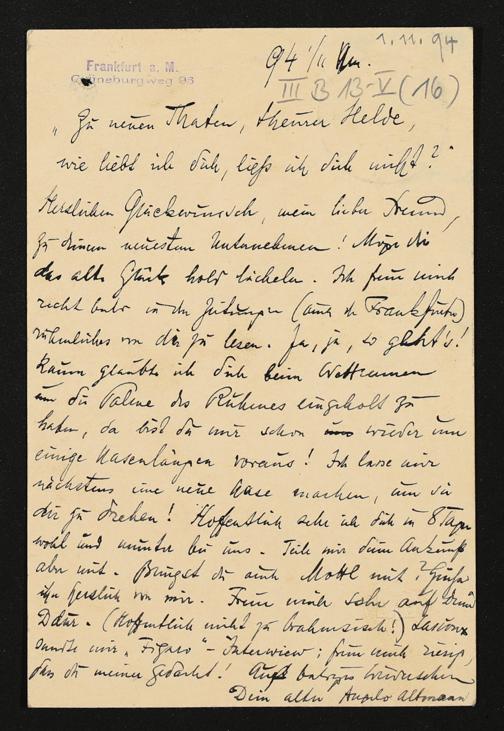 1.11.94
Frankfurt a. M.
Grüneburgweg 96
94 1/11
III B 13-V (16)
"Zu neuen Thaten, theurer Helde,
wie liebt ich dich, ließ ich dich nicht?"
Herzlichen Glückwunsch, mein lieber Freund,
zu deinem neuesten Unternehmen! Möge dir
das alte Glück hold lächeln. Ich freue mich
recht sehr in den Zeitungen (auch de Frankfurter)
rühmliches von dir zu lesen. Ja, ja, so geht's!
Kaum glaubte ich dich beim Wettrennen
um die Palme des Ruhmes eingeholt zu
haben, da bist du mir schon wieder um
einige Nasenlängen voraus! Ich lasse mir
nächstens eine neue Nase machen, um sie
dir zu drehen! Hoffentlich sehe ich dich in 8 Tagen
wohl und munter bei uns. Teile mir deine Ankunft
aber mit. Bringst du auch Mottl mit? Grüße
ihn herzlich von mir. Freue mich sehr auf Dein
D dur. (Hoffentlich nicht zu brahmsisch!)
sandte mir "Figaro"-Interview; freue mich riesig,
dass du meiner gedacht! Auf baldiges Wiedersehen
Dein alter